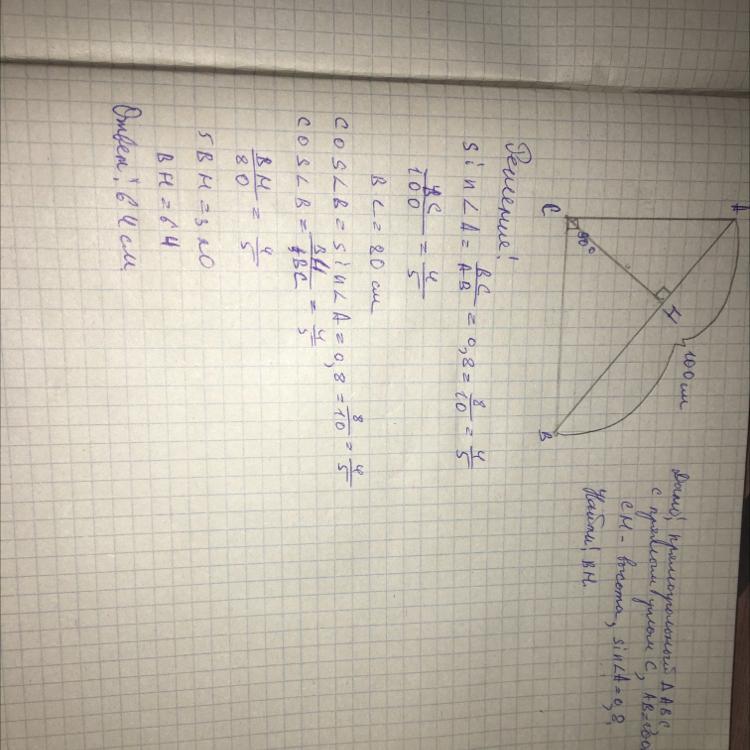 A
H
100 см
C
90°
B
Дано: прямоугольный ΔABC
с прямым углом C, AB=100
CH - высота, sin∠A=0,8
Найти: BH.
Решение:
sin∠A = BC/AB = 0,8 = 8/10 = 4/5
BC/100 = 4/5
BC = 80 см
cos∠B = sin∠A = 0,8 = 8/10 = 4/5
cos∠B = BH/BC = 4/5
BH/80 = 4/5
5BH = 320
BH = 64
Ответ: 64 см